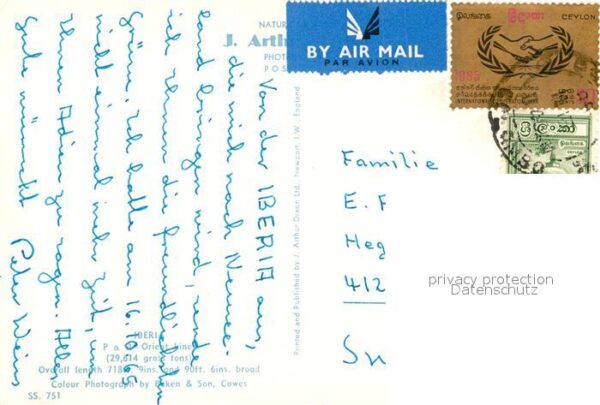 NATUR
J. Arth
PHOTO
POS
BY AIR MAIL
PAR AVION
ලංකා
CEYLON
1965
INTERNATIONAL
Von der IBERIA aus,
die mich nach Neusee-
land bringen wird, sende
ich Ihnen die freundlichsten
Grüsse. Ich hatte am 16.10.65
nicht einmal mehr Zeit, um
Ihnen Adieu zu sagen. Alles
Gute wünscht
Peter
Printed and Published by J. Arthur Dixon Ltd., Newport, I.W. England
Familie
E. F
Heg
412
Sn
privacy protection
Datenschutz
IBERIA
P & O Orient Lines
(29,614 gross tons)
Overall length 718ft. 9ins. and 90ft. 6ins. broad
Colour Photograph by Beken & Son, Cowes
SS. 751